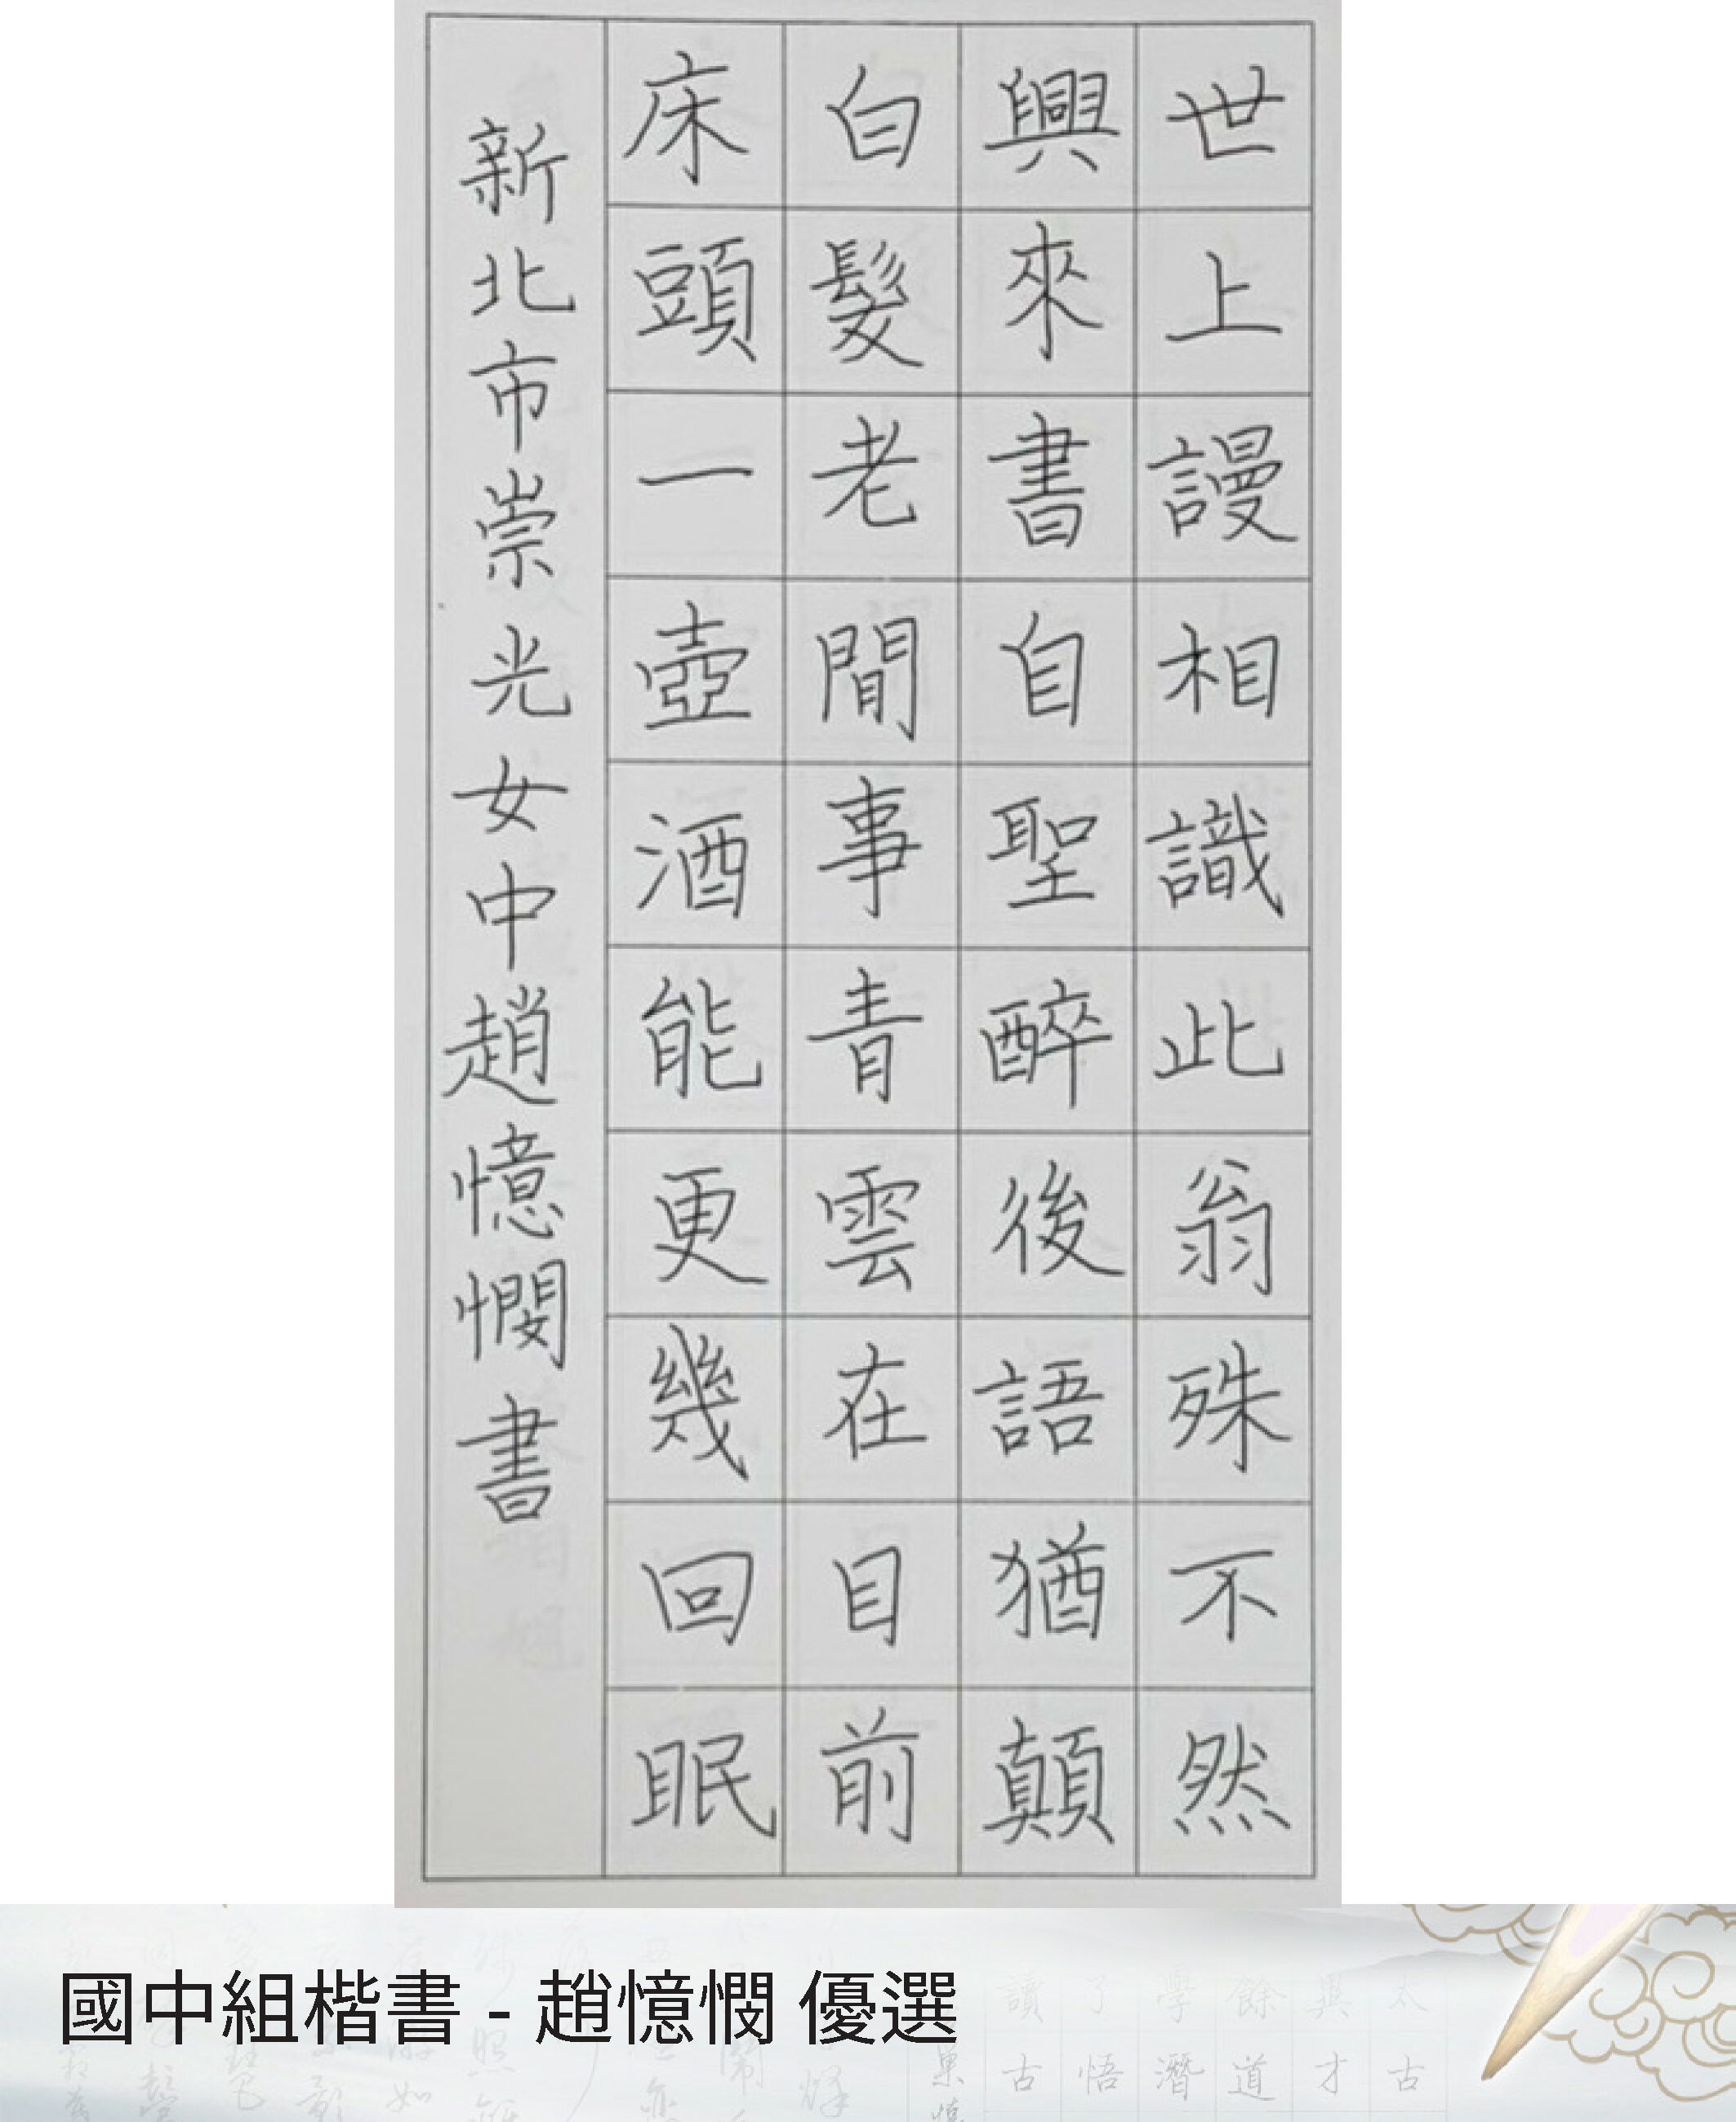 世上謾相識此翁殊不然
興來書自聖醉後語猶顛
白髮老閒事青雲在目前
床頭一壺酒能更幾回眠
新北市崇光女中趙憶憫書
國中組楷書 - 趙憶憫 優選